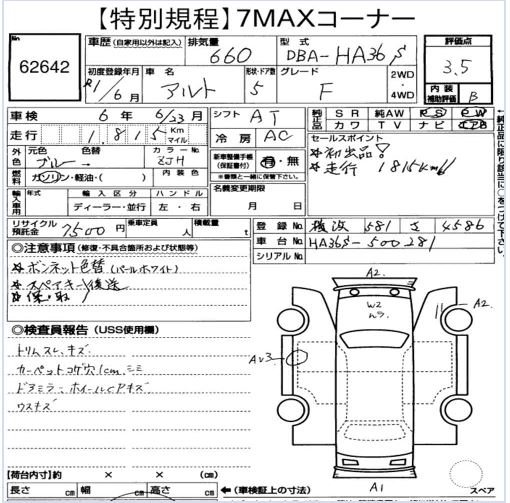 【特別規程】7MAXコーナー
No 62642
車歴 (自家用以外は記入) 排気量 660 型式 DBA-HA36S 評価点 3.5
初度登録年月 R1/6月 車名 アルト 形状・ドア数 5 グレード F 2WD・4WD 内装補助評価 B
車検 6年 6/23月 シフト AT 純正品 SR 純AW PS PW
走行 1815 Km マイル 冷房 AC カワ TV ナビ エアB
外色 元色 ブルー 色替 カラーNo. ZJH 新車整備手帳(保証書付) 有・無 セールスポイント
※書類と一緒に保管下さい ☆初出品!
燃料 ガソリン・軽油・( ) 内装色 ☆走行 1815km!!
輸入車用 年式 輸入区分 ディーラー・並行 ハンドル 左・右 名義変更期限 月 日
←純正品に限り該当に○をつけて下さい。
リサイクル預託金 7500円 乗車定員 人 積載量 t 登録No. 横浜 581 さ 4586
車台No. HA36S-500281
シリアルNo.
◎注意事項 (修復・不具合箇所および状態等)
☆ボンネット色替(パールホワイト)
☆スペアキー後送
☆保・取
◎検査員報告 (USS使用欄)
トリムスレ、キズ
カーペットコゲ穴1cm、シミ
ドアミラー ホイールCPキズ
ウスキズ
A2
W2 ムラ
A2
AU3
A1
スペア
【荷台内寸】約 × × (cm)
長さ cm 幅 cm 高さ cm ←(車検証上の寸法)